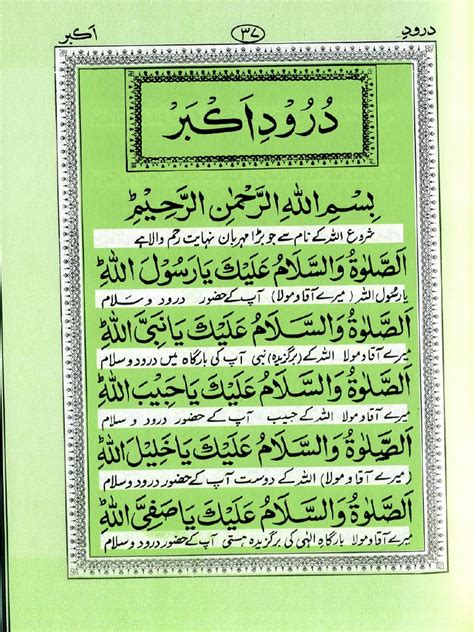 درود ۳۷ اکبر
دُرُودِ اَکبَر
بِسْمِ اللهِ الرَّحْمٰنِ الرَّحِیْمِ
شروع اللہ کے نام سے جو بڑا مہربان نہایت رحم والا ہے
اَلصَّلٰوةُ وَالسَّلَامُ عَلَیْكَ یَا رَسُوْلَ اللهِ
یا رسول اللہ (میرے آقا و مولا) آپ کے حضور درود و سلام
اَلصَّلٰوةُ وَالسَّلَامُ عَلَیْكَ یَا نَبِیَّ اللهِ
میرے آقا و مولا اللہ کے (برگزیدہ) نبی آپ کی بارگاہ میں درود و سلام
اَلصَّلٰوةُ وَالسَّلَامُ عَلَیْكَ یَا حَبِیْبَ اللهِ
میرے آقا و مولا اللہ کے حبیب آپ کے حضور درود و سلام
اَلصَّلٰوةُ وَالسَّلَامُ عَلَیْكَ یَا خَلِیْلَ اللهِ
(میرے آقا و مولا) اللہ کے دوست آپ کے حضور درود و سلام
اَلصَّلٰوةُ وَالسَّلَامُ عَلَیْكَ یَا صَفِیَّ اللهِ
میرے آقا و مولا بارگاہ الٰہی کی برگزیدہ ہستی آپ کے حضور درود و سلام